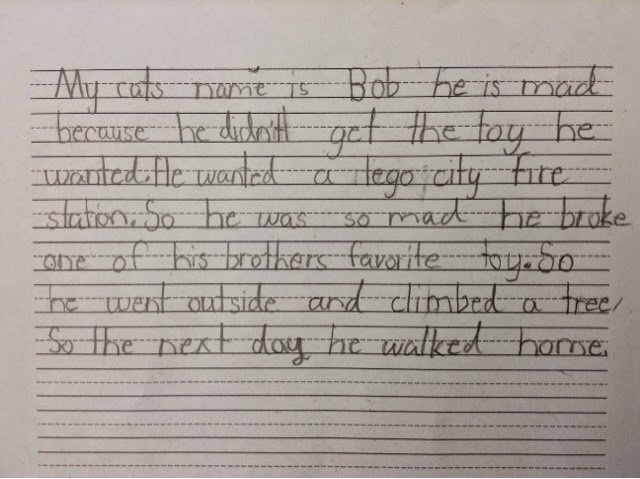 My cats name is Bob he is mad
because he didn't get the toy he
wanted. He wanted a lego city fire
station. So he was so mad he broke
one of his brothers favorite toy. So
he went outside and climbed a tree,
So the next day he walked home.